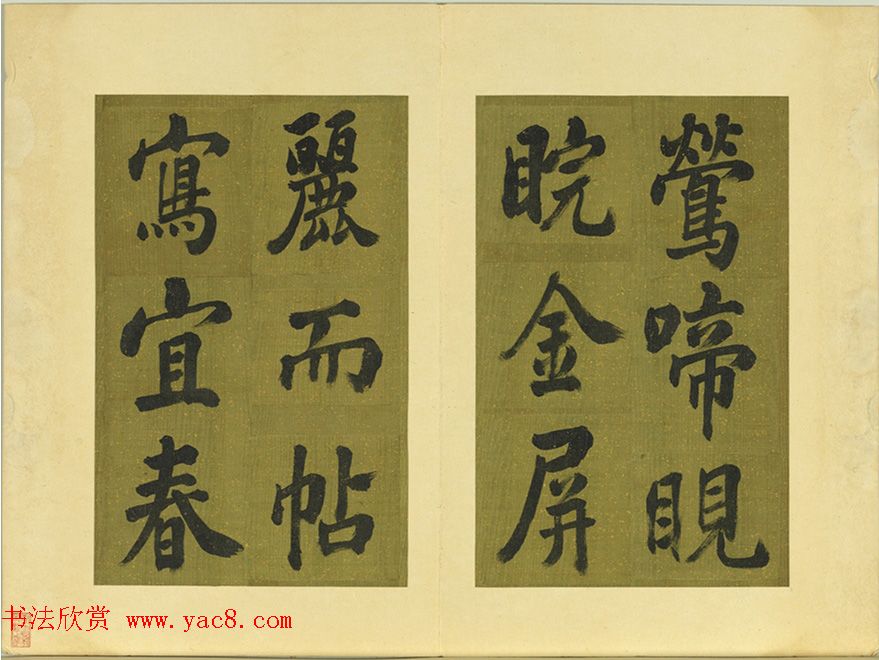 鶯啼睍
睆金屏
麗而帖
寫宜春
书法欣赏 www.yac8.com